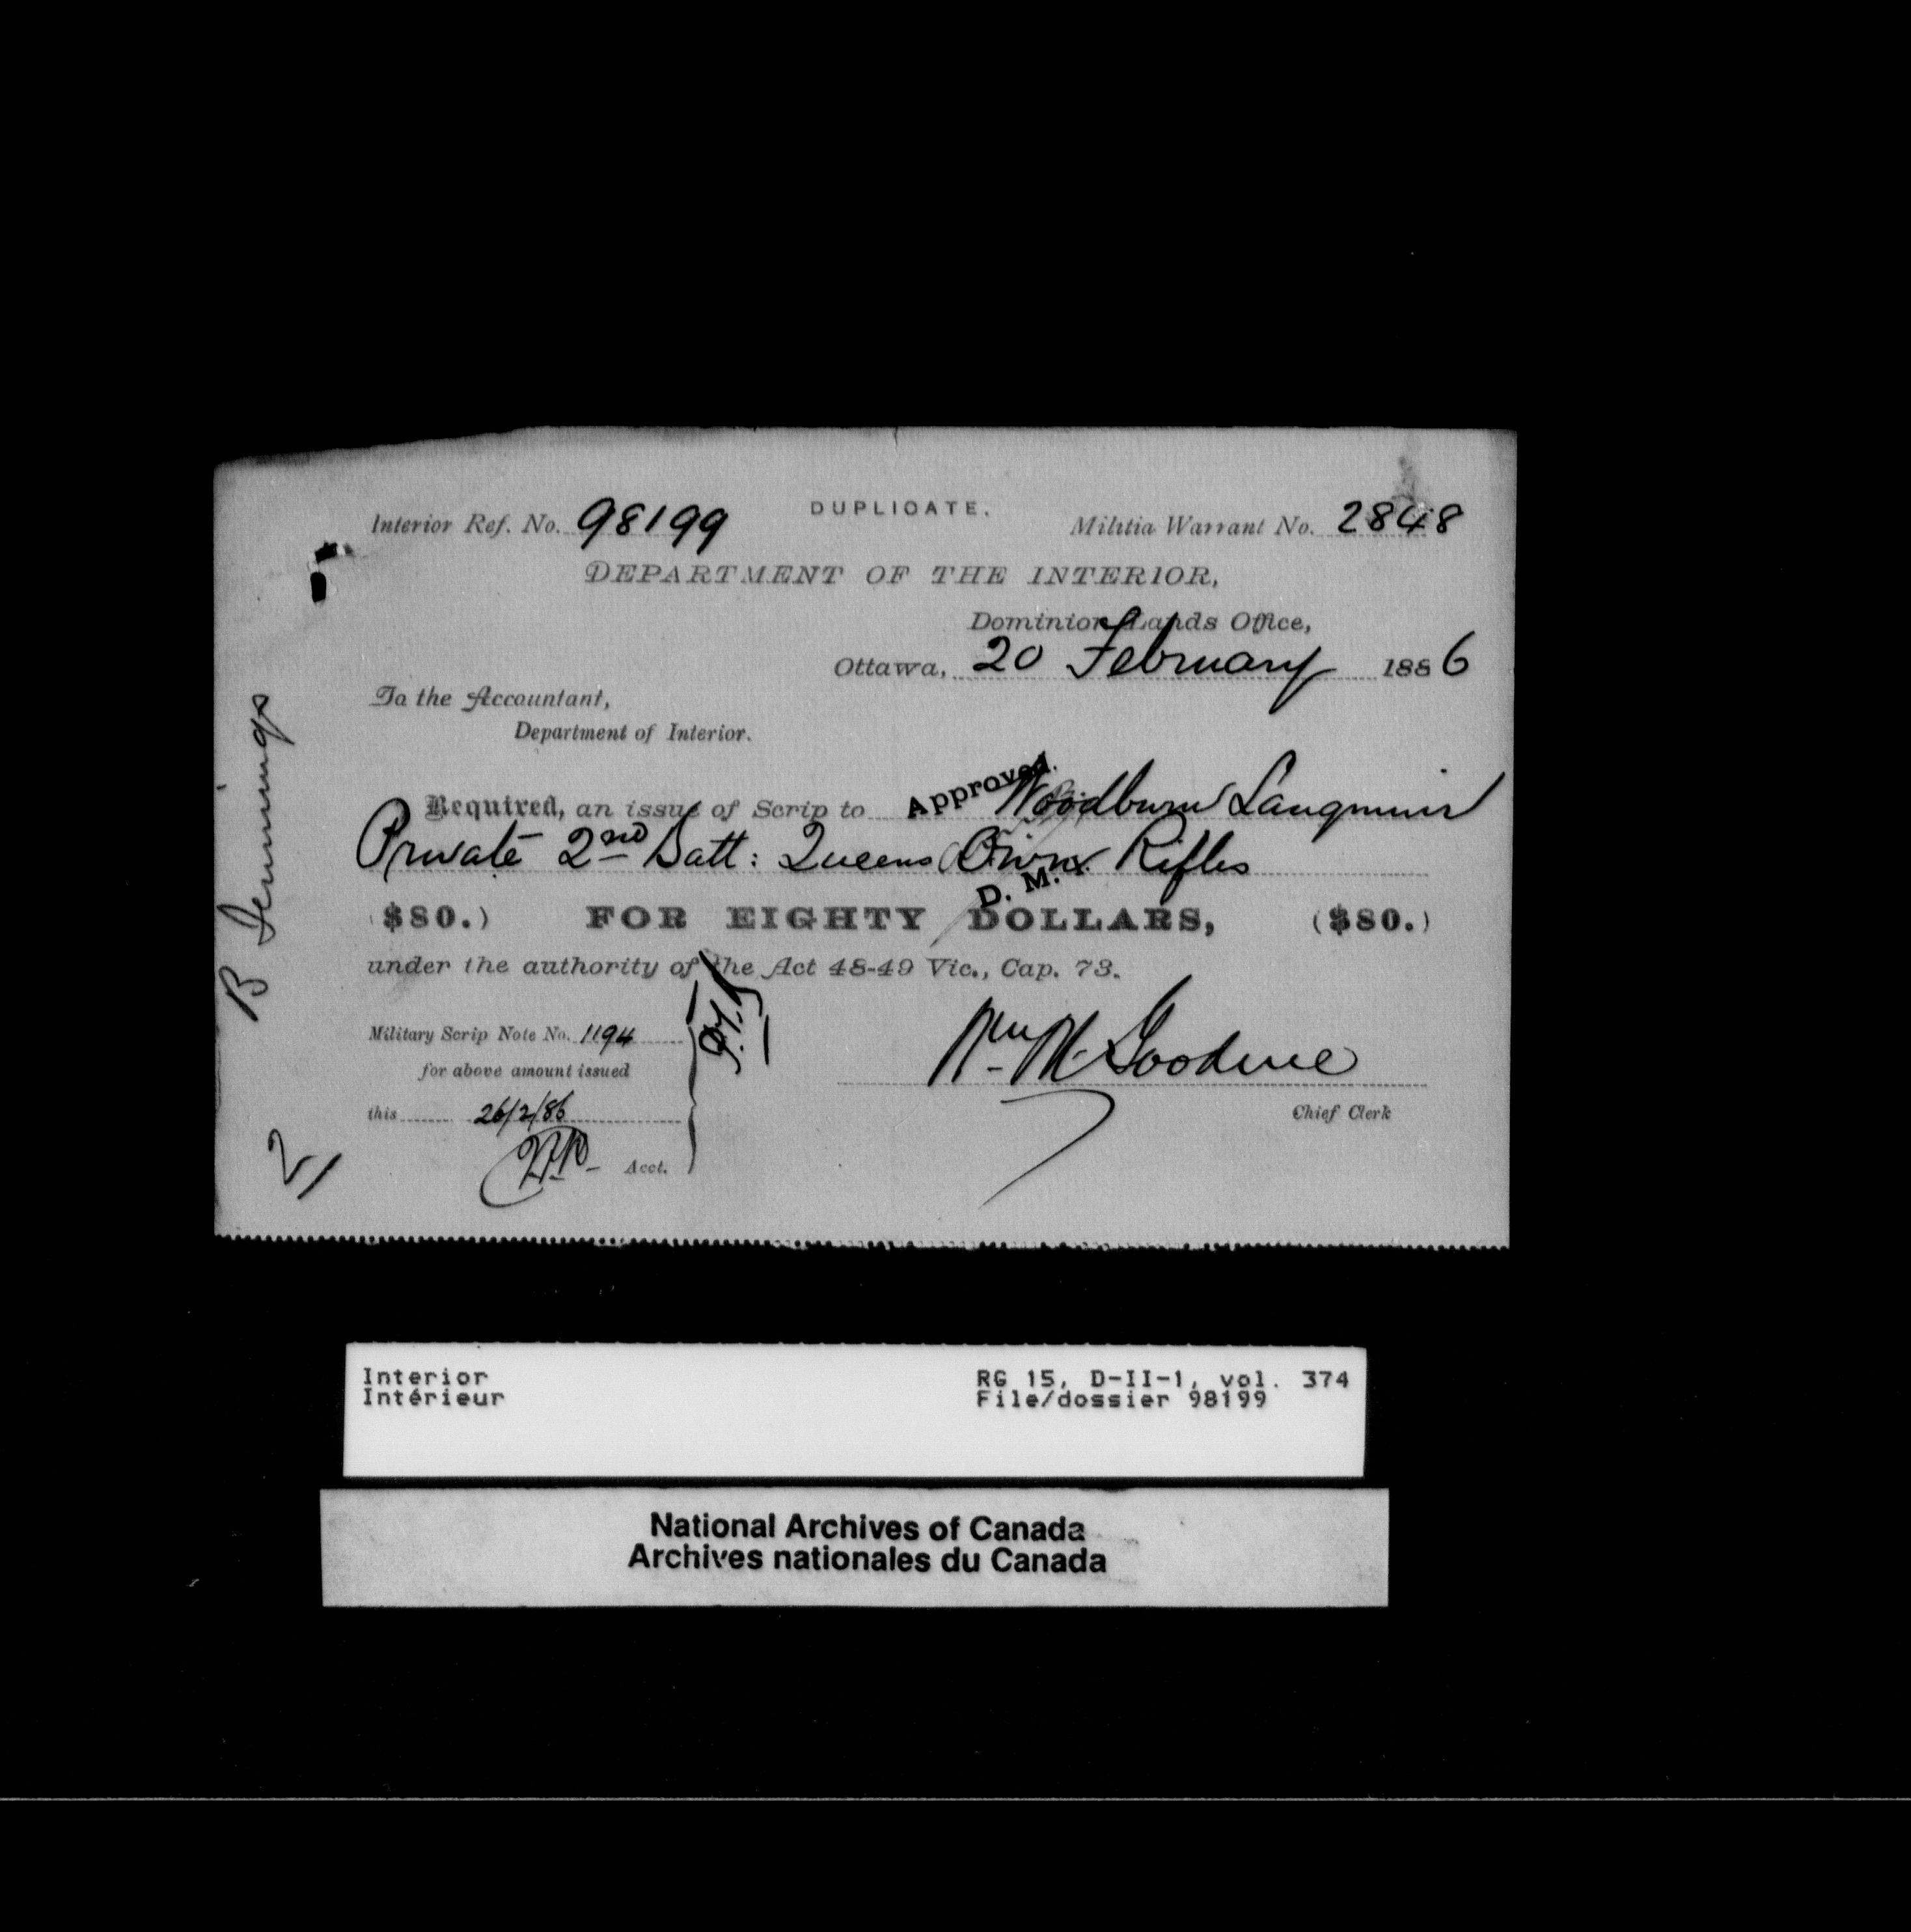 DUPLICATE.
Interior Ref. No. 98199
Militia Warrant No. 2848
DEPARTMENT OF THE INTERIOR,
Dominion Lands Office,
Ottawa, 20 February 1886
To the Accountant,
Department of Interior.
Approved.
Required, an issue of Scrip to Woodburn Langmuir
Private 2nd Batt: Queens Own Rifles
D. M. I.
($80.) FOR EIGHTY DOLLARS, ($80.)
under the authority of the Act 48-49 Vic., Cap. 73.
Military Scrip Note No. 1194
for above amount issued
this 26/2/86
Acct.
Wm M. Goodeve
Chief Clerk
B Jennings
21
Interior
Intérieur
RG 15, D-II-1, vol. 374
File/dossier 98199
National Archives of Canada
Archives nationales du Canada